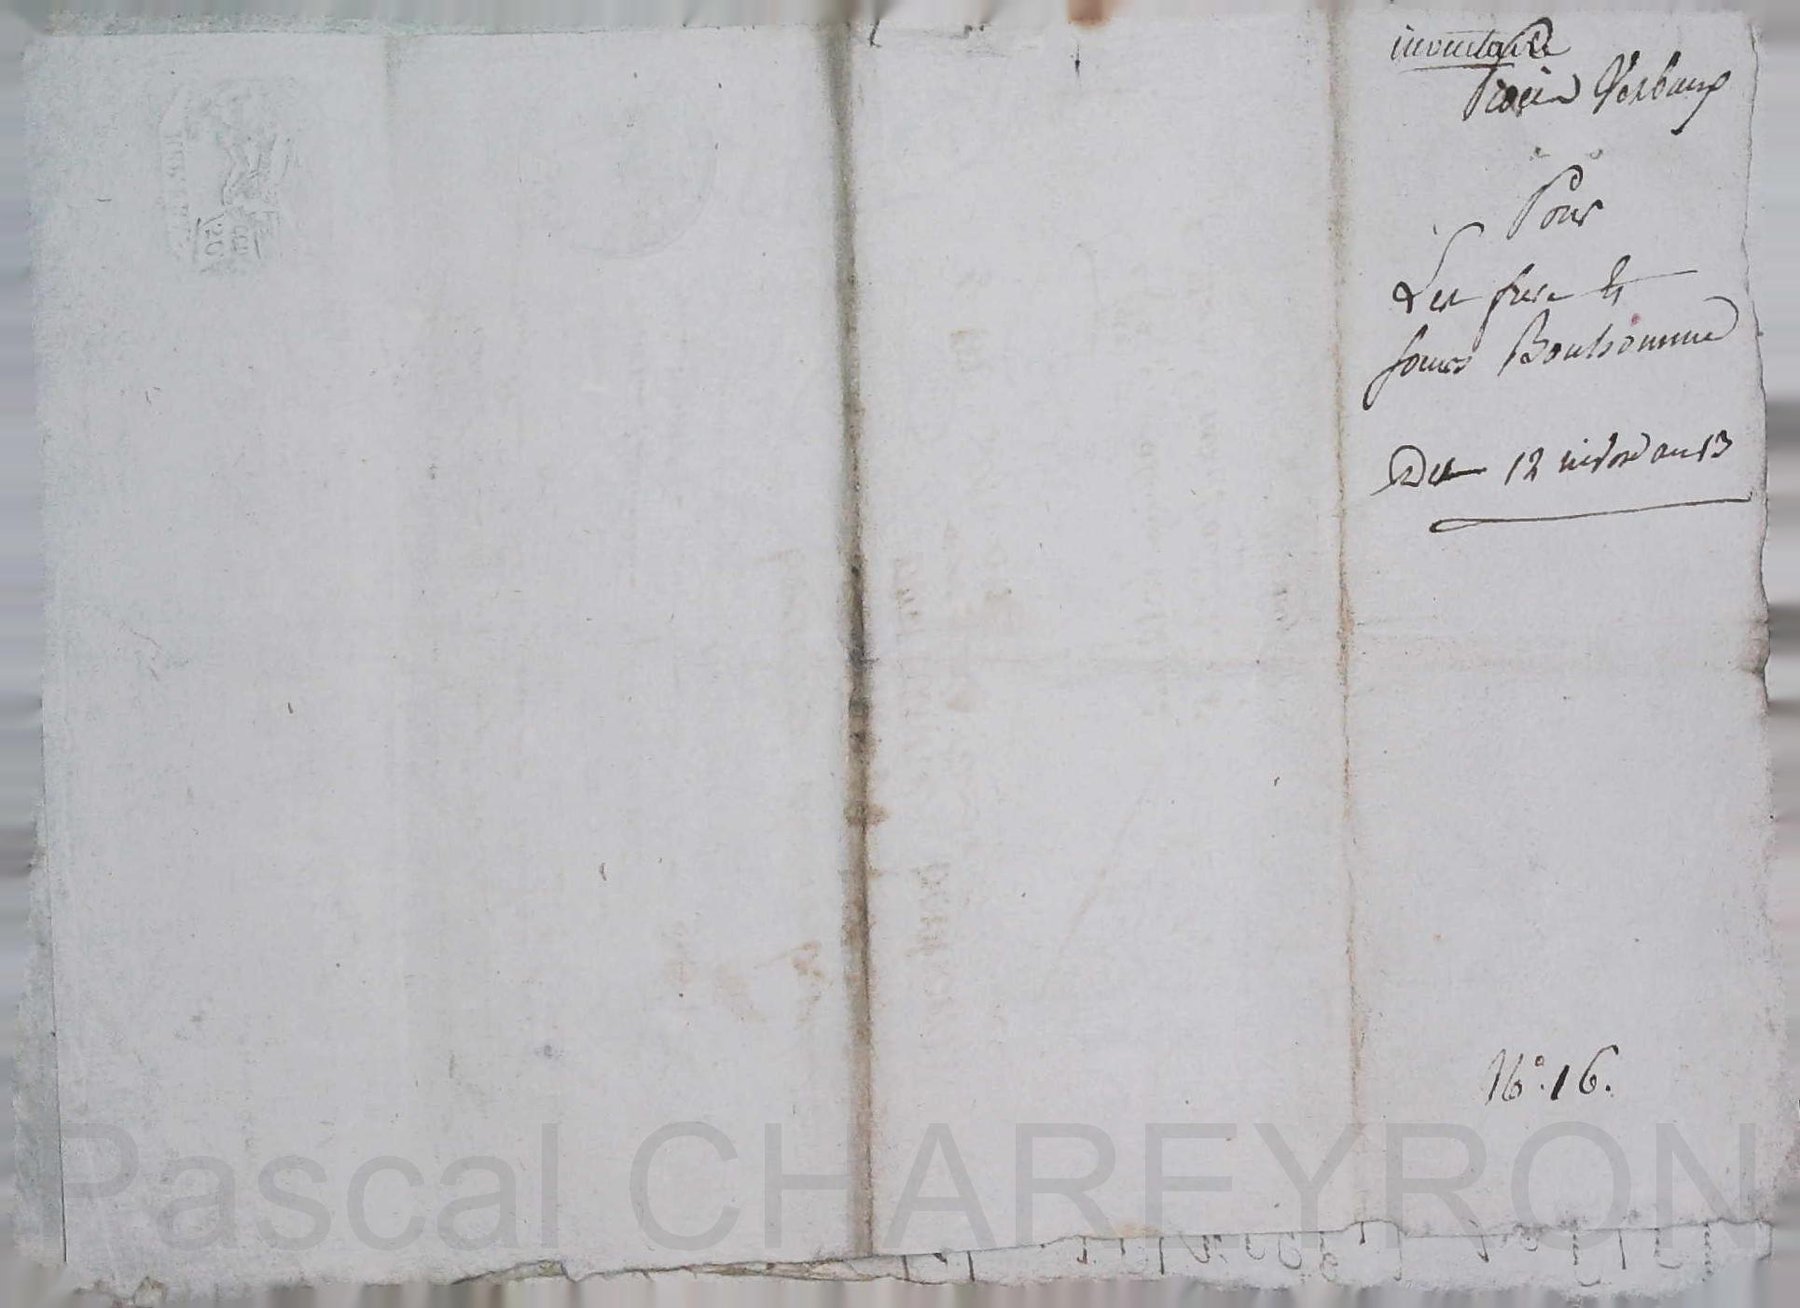 inventaire
Procès Verbaux
Pour
Les frere et
soeurs Bonhomme
Du 12 nivose an 13
No. 16.
Pascal CHAREYRON